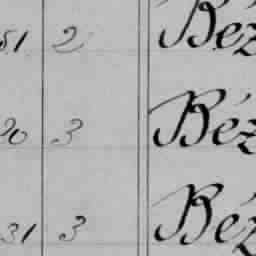 51 2 Béz
20 3 Béz
31 3 Béz